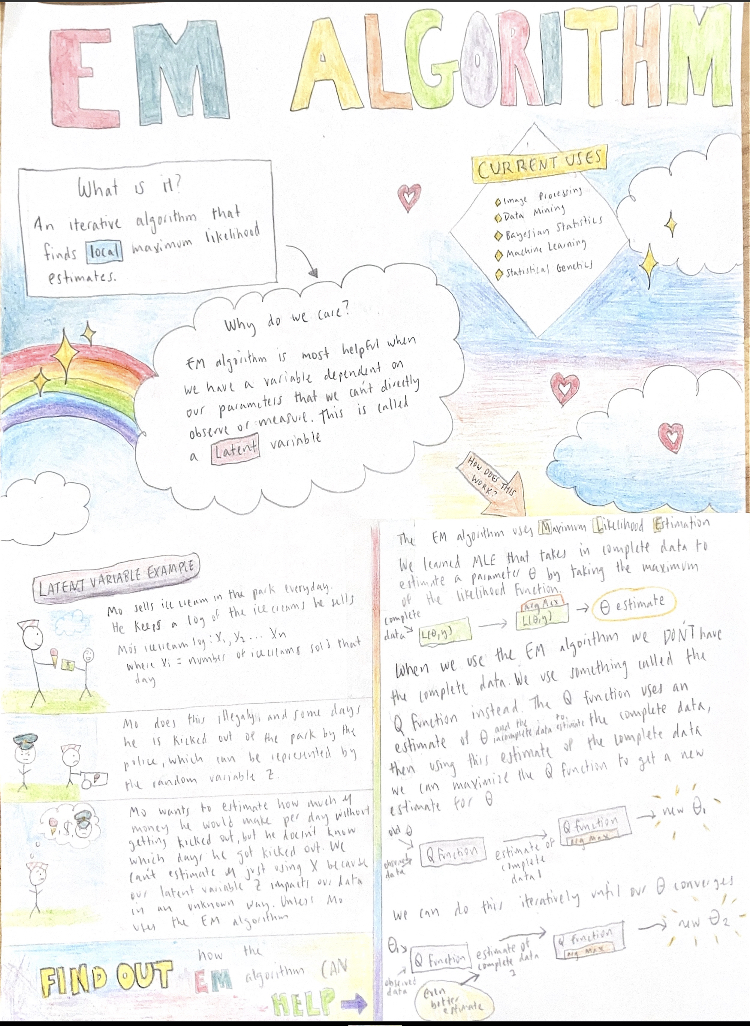 EM ALGORITHM
What is it?
An iterative algorithm that
finds local maximum likelihood
estimates.
CURRENT USES
Image Processing
Data Mining
Bayesian Statistics
Machine Learning
Statistical Genetics
Why do we care?
EM algorithm is most helpful when
we have a variable dependent on
our parameters that we can't directly
observe or measure. This is called
a Latent variable
HOW DOES THIS
WORK?
LATENT VARIABLE EXAMPLE
Mo sells ice cream in the park everyday.
He keeps a log of the ice creams he sells
Mo's icecream log: X₁, X₂ ... Xn
where Xi = number of icecreams sold that
day
Mo does this illegally, and some days
he is kicked out of the park by the
police, which can be represented by
the random variable Z.
Mo wants to estimate how much
money he would make per day without
getting kicked out, but he doesn't know
which days he got kicked out. We
can't estimate by just using X because
our latent variable Z impacts our data
in an unknown way. Unless Mo
uses the EM algorithm
FIND OUT how the
EM algorithm CAN
HELP
The EM algorithm uses Maximum Likelihood Estimation
We learned MLE that takes in complete data to
estimate a parameter θ by taking the maximum
of the likelihood function.
complete
data
L(θ;y)
Arg Max
L(θ;y)
θ estimate
When we use the EM algorithm we DON'T have
the complete data. We use something called the
Q function instead. The Q function uses an
estimate of θ and the incomplete data to estimate the complete data,
then using this estimate of the complete data
we can maximize the Q function to get a new
estimate for θ
old θ
observed
data
Q function
estimate of
complete
data 1
Q function
arg max
new θ₁
We can do this iteratively until our θ converges
θ₁
observed
data
Q function
estimate of
complete data
2
Even
better
estimate
Q function
arg max
new θ₂